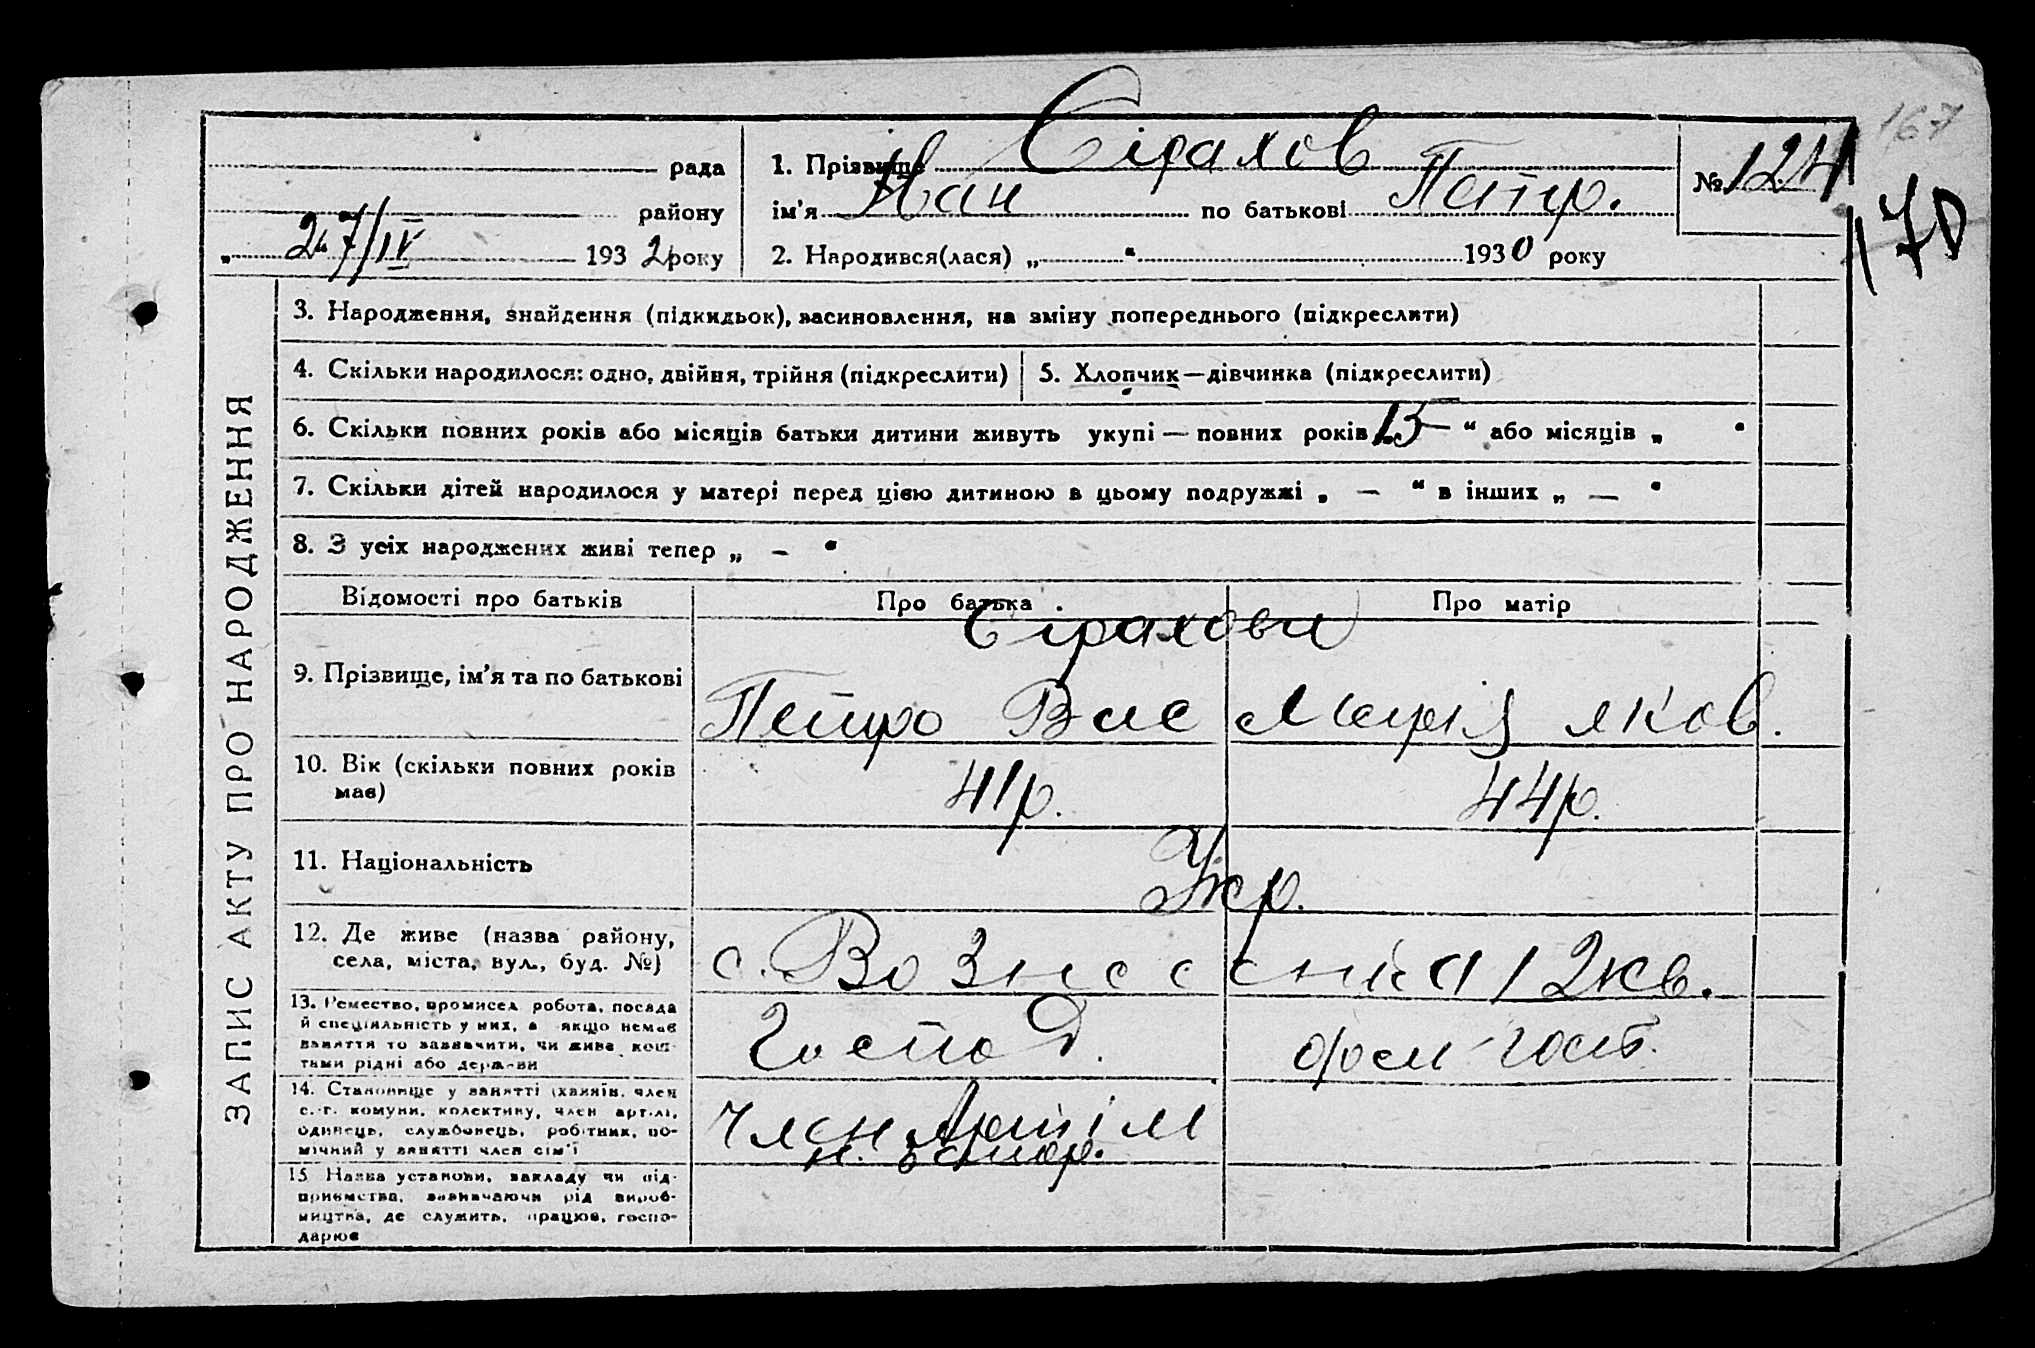 167
рада
1. Прізвище Сірахов
№ 124
170
району
ім'я Іван по батькові Петр.
„ 27/IV 1932 року
2. Народився(лася) „ “ 1930 року
ЗАПИС АКТУ ПРО НАРОДЖЕННЯ
3. Народження, знайдення (підкидьок), засиновлення, на зміну попереднього (підкреслити)
4. Скільки народилося: одно, двійня, трійня (підкреслити)
5. Хлопчик—дівчинка (підкреслити)
6. Скільки повних років або місяців батьки дитини живуть укупі — повних років „ 15 “ або місяців „ “
7. Скільки дітей народилося у матері перед цією дитиною в цьому подружжі „ — “ в інших „ — “
8. З усіх народжених живі тепер „ - “
Відомості про батьків
Про батька
Про матір
Сірахови
9. Прізвище, ім'я та по батькові
Петро Вас
Марія Яков.
10. Вік (скільки повних років
має)
41р.
44р.
11. Національність
Укр.
12. Де живе (назва району,
села, міста, вул., буд. №)
с. Вознесенка 12кв.
13. Ремество, промисел робота, посада
й спеціяльність у них, а якщо немає
заняття то зазначити, чи живе кош-
тами рідні або держави
Господ.
дом-госп.
14. Становище у занятті (хазяїн, член
с.-г. комуни, колективу, член артілі,
одинець, службовець, робітник, по-
мічний у занятті член сім'ї
Член Артіл
15 Назва установи, закладу чи під-
приємства, зазначаючи рід вироб-
ництва, де служить, працює, госпо-
дарює